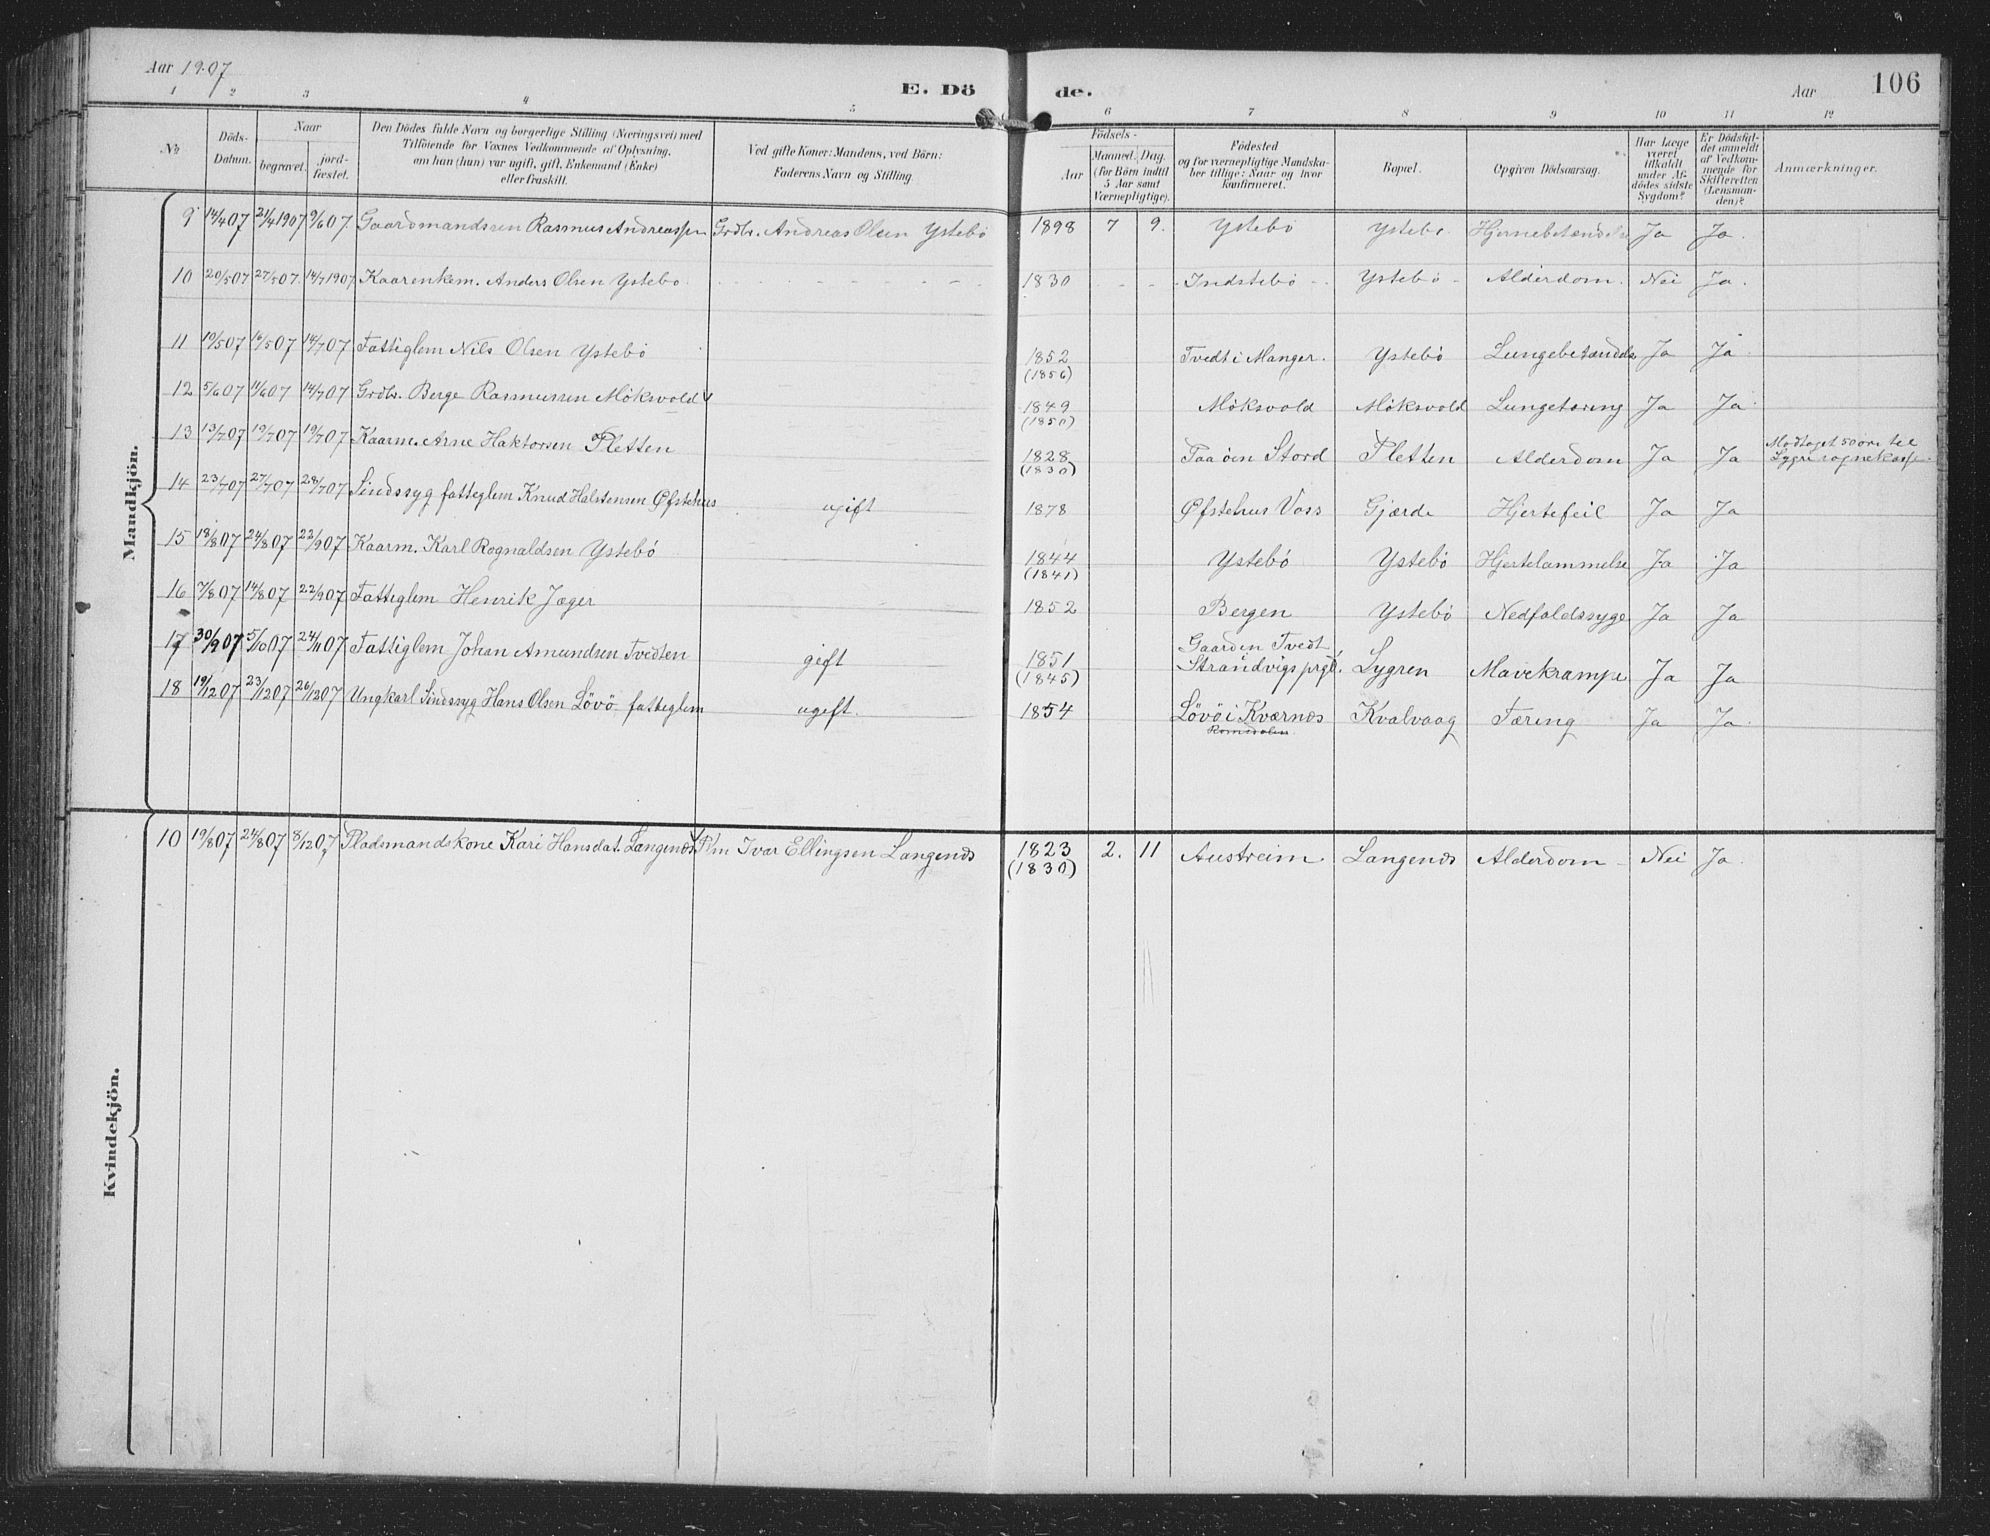 Aar 1907 E. Dö de. Aar 106
1 2 3 4 5 6 7 8 9 10 11 12
№ Döds-Datum. Naar begravet. jord-fæstet. Den Dödes fulde Navn og borgerlige Stilling (Næringsvei) med Tilföiende for Voxnes Vedkommende af Oplysning, om han (hun) var ugift, gift, Enkemand (Enke) eller fraskilt. Ved gifte Koner: Mandens, ved Börn: Faderens Navn og Stilling Födsels- Aar Maaned. Dag. (for Börn indtil 5 Aar samt Værnepligtige). Födested og for værnepligtige Mandskaber tillige: Naar og hvor konfirmeret. Bopæl. Opgiven Dödsaarsag. Har Læge været tilkaldt under Afdödes sidste Sygdom? Er Dödsfaldet anmeldt af Vedkommende for Skifteretten (Lensmanden)? Anmærkninger.
Mandkjön.
9 14/4 07 21/4 1907 9/6 07. Gaardmandssøn Rasmus Andreassen Grdbr. Andreas Olsen Ystebö 1898 7 9. Ystebö Ystebö Hjernebetændelse Ja Ja.
10 20/5 07 27/5 07. 14/7 1907 Kaarenkem. Anders Olsen Ystebø 1830 Indstebö Ystebö Alderdom. Nei Ja.
11 10/5 07 16/5 07 14/7 07 Fattiglem Nils Olsen Ystebö 1852 (1856) Tvedt i Manger. Ystebö Lungebetændelse Ja Ja
12 5/6 07 11/6 07 14/7 07 Grdbr. Berge Rasmussen Möksvold 1849 (1850) Möksvold Möksvold Lungetæring Ja Ja
13 13/7 07 19/7 07 19/7 07 Kaarm. Arne Haktorsen Pletten 1828 (1830) Paa öen Stord Pletten Alderdom Ja Ja Modtaget 50 öre til Lygre sognekasse.
14 23/7 07 27/7 07 28/7 07 Sindssyg fattiglem Knud Halstensen Øfstehus ugift 1878 Øfstehus Voss Gjærde Hjertefeil Ja Ja
15 18/8 07 24/8 07 22/9 07 Kaarm. Karl Rognaldsen Ystebö 1844 (1841) Ystebö Ystebö Hjertelammelse Ja Ja
16 7/8 07 14/8 07 22/9 07 Fattiglem Henrik Jæger 1852 Bergen Ystebö Nedfaldssyge Ja Ja
17 30/9 07 5/10 07 24/11 07 Fattiglem Johan Amundsen Tvedten gift 1851 (1845) Gaarden Tvedt, Strandvigs prgd. Lygren Mavekrampe Ja Ja
18 19/12 07 23/12 07 26/12 07 Ungkarl Sindssyg Hans Olsen Lövö fattiglem ugift. 1854 Lövö i Kværnes Romsdalen. Kvalvaag Tæring Ja Ja
Kvindekjön.
10 19/8 07 24/8 07 8/12 07 Pladsmandskone Kari Hansdat. Langenæs Plm Ivar Ellingsen Langenæs 1823 (1830) 2. 11 Austreim Langenæs Alderdom Nei Ja.